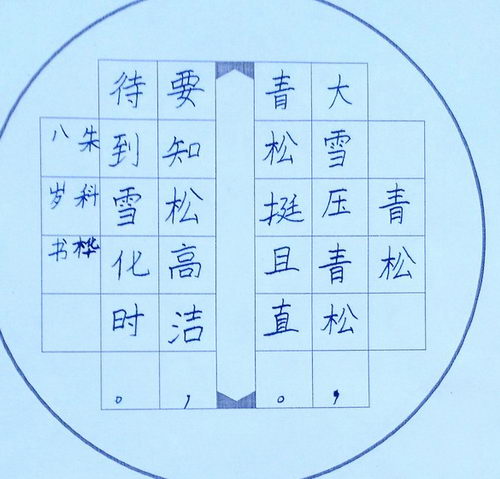 青松
大雪压青松，
青松挺且直。
要知松高洁，
待到雪化时。
朱科桦
八岁书